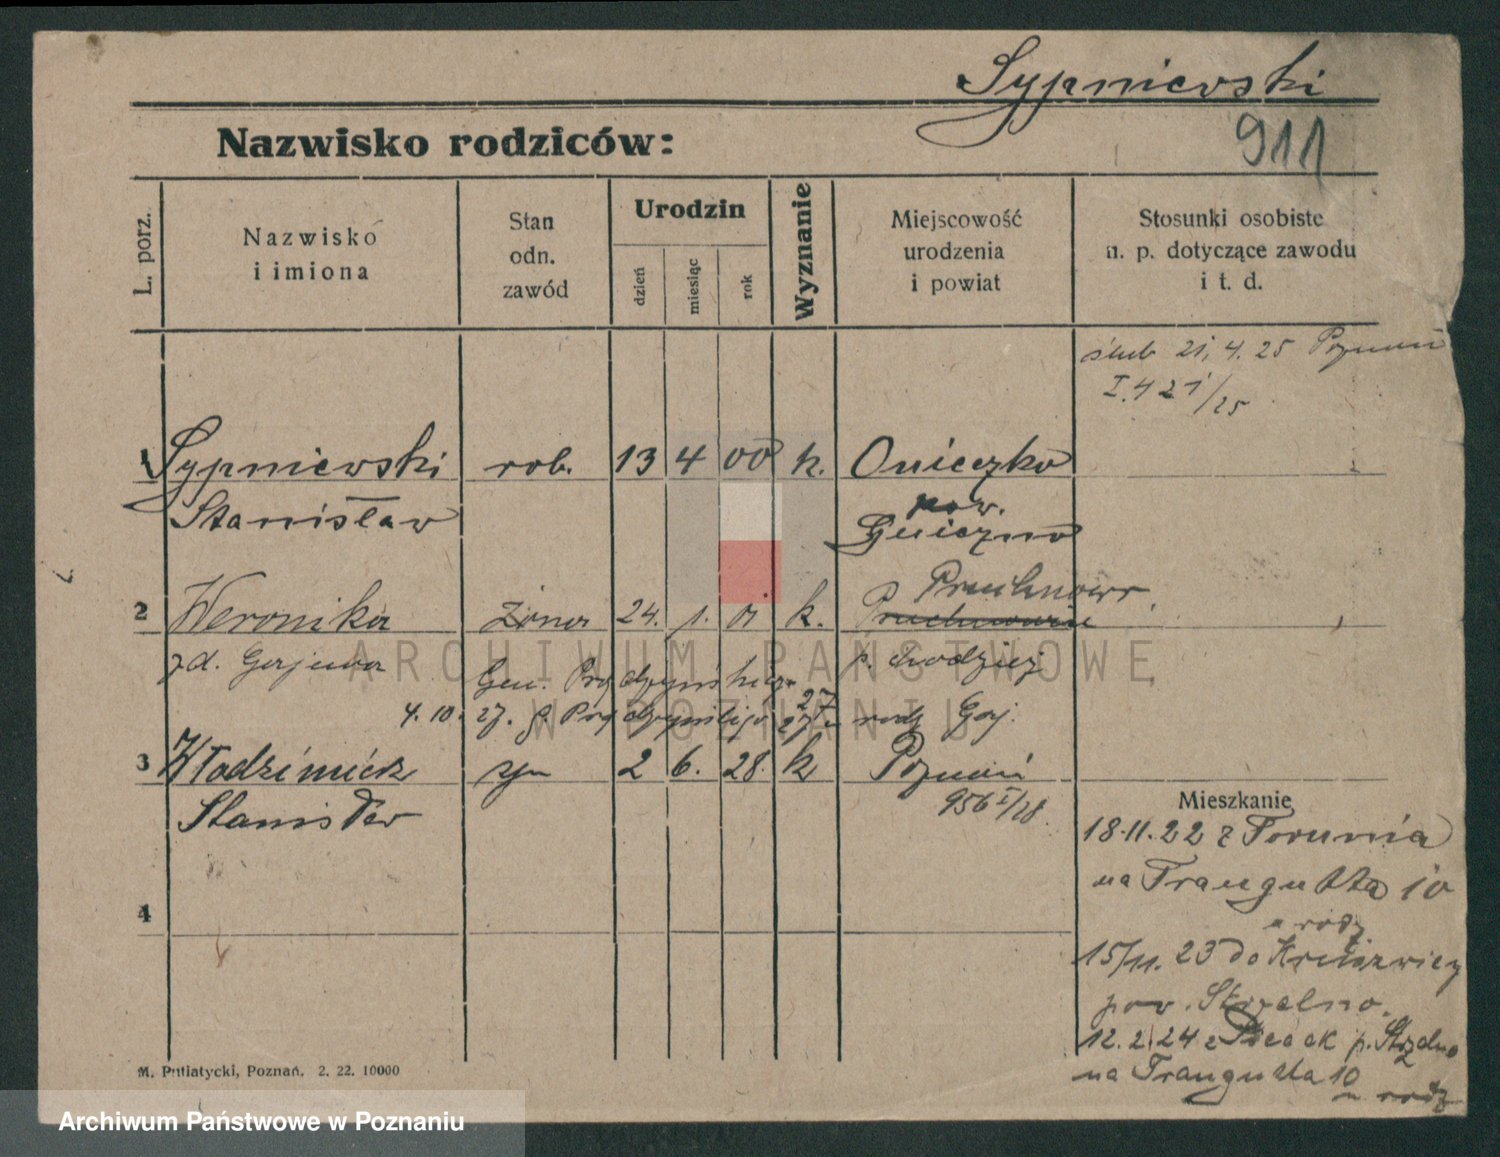 Sypniewski
911
Nazwisko rodziców:
L. porz.
Nazwisko
i imiona
Stan
odn.
zawód
Urodzin
dzień
miesiąc
rok
Wyznanie
Miejscowość
urodzenia
i powiat
Stosunki osobiste
n. p. dotyczące zawodu
i t. d.
ślub 21. 4. 25 Poznań
I. 421/25
1 Sypniewski rob. 13 4 00 k. Owieczko
Stanisław pow.
Gniezno
2 Weronika żona 24. 1. 01 k. Pruchnowo
zd. p. Chodzież
4. 10. 27. rodz
3 Włodzimierz syn 2 6. 28. k Poznań
Stanisław 956 I/28
Mieszkanie
18.11.22 z Torunia
na Traugutta 10
u rodz
15/11. 23 do Kruszwicy
pow. Strzelno.
12. 2 24 z p. Strzelno
na Traugutta 10
u rodz
4
M. Putiatycki, Poznań. 2. 22. 10000
ARCHIWUM PAŃSTWOWE
W POZNANIU
Archiwum Państwowe w Poznaniu